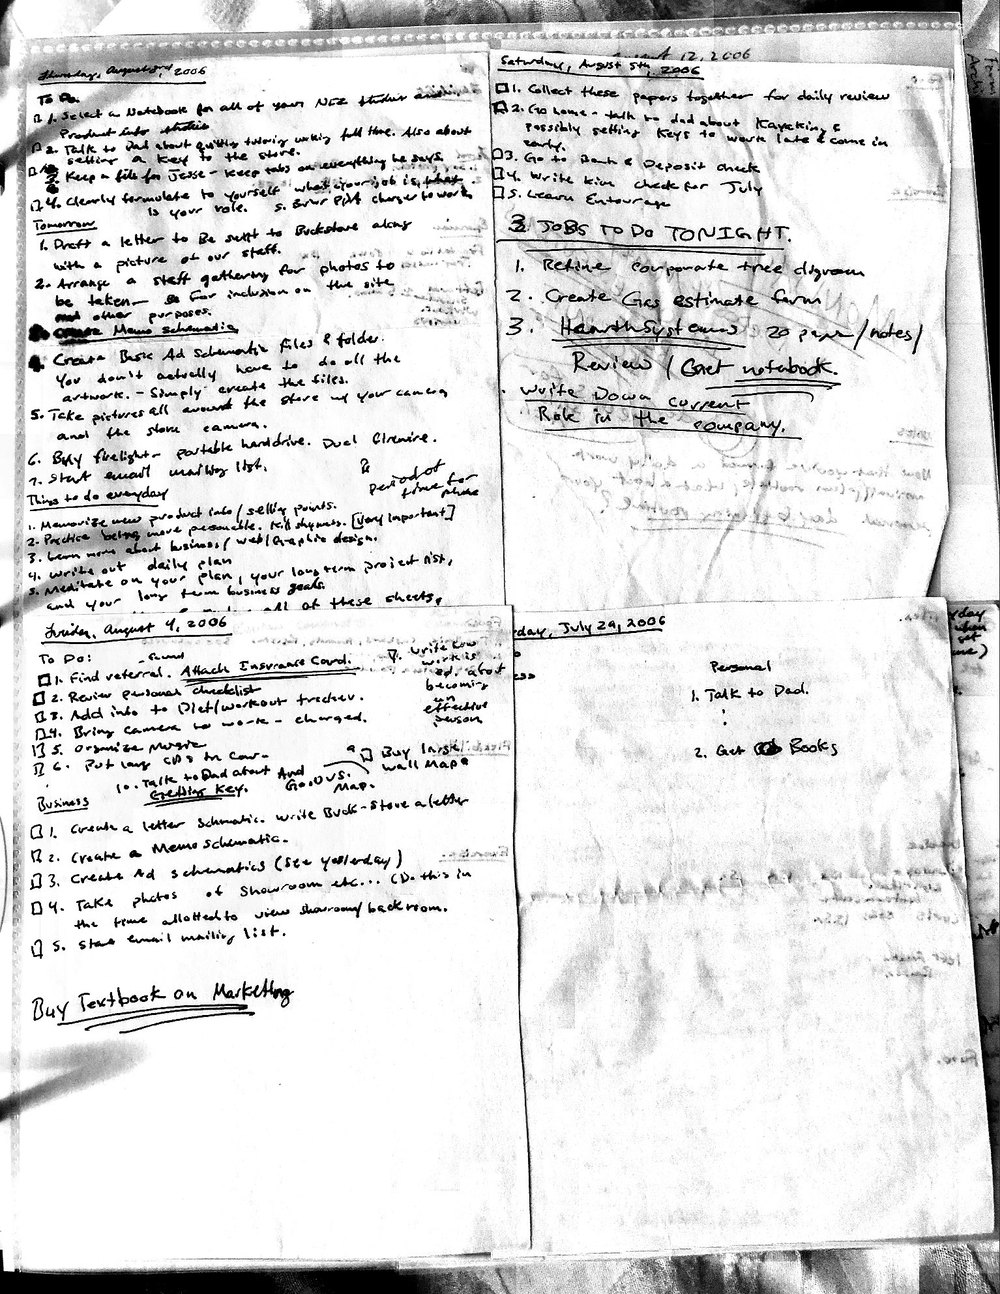 Thursday, August 3rd, 2006
To Do:
1. Select a Notebook for all of your
Product info
2. Talk to Dad about quitting tutoring working full time. Also about
setting a key to the store.
3. Keep a file for Jesse - Keep tabs on everything he says
4. Clearly formulate to yourself what your job is, what
is your role. 5. charger to work.
Tomorrow
1. Draft a letter to Be sent to Buckstove along
with a picture of our staff.
2. Arrange a staff gathering for photos to
be taken - for inclusion on the site
and other purposes.
3. Create Memo schematic
4. Create Basic Ad Schematic Files & folder.
You don't actually have to do all the
artwork. - Simply create the files.
5. Take pictures all around the store w/ your camera
and the store camera.
6. Buy firelight - portable harddrive. Dual
7. Start email mailing list.
period of
time for
Things to do everyday
1. Memorize new product info / selling points.
2. Practice being more personable. Kill shyness. [Very Important]
3. Learn more about business / web / Graphic design.
4. Write out daily plan
5. Meditate on your plan, your long term project list,
and your long term business goals.
all of these sheets,
Friday, August 4, 2006
To Do:
1. Find referral. Attach Insurance Card.
2. Review personal checklist
3. Add info to Diet/workout tracker.
4. Bring camera to work - charged.
5. Organize Music
6. Put CDs in Car -
write
work
about
becoming
an
effective
person
Buy large
wall Map
10. Talk to Dad about
Getting Key.
And
Good US.
Map.
Business
1. Create a letter Schmatic. Write Buck-Stove a letter
2. Create a Memo Schematic.
3. Create Ad schematics (See yesterday)
4. Take photos of showroom etc... (Do this in
the time allotted to view showroom/backroom.
5. Start email mailing list.
Buy Textbook on Marketing
August 12, 2006
Saturday, August 5th, 2006
1. Collect these papers together for daily review
2. Go home - talk to dad about Kayaking &
possibly getting Keys to work late & come in
early.
3. Go to Bank & Deposit check
4. Write Kim check for July
5. Learn Entourage
3 JOBS TO DO TONIGHT.
1. Refine corporate tree digram
2. Create Gas estimate form
3. HearthSystems 20 paper/notes/
Review / Get notebook.
Write Down current
Role in the company.
day, July 29, 2006
Personal
1. Talk to Dad.
2. Get Books